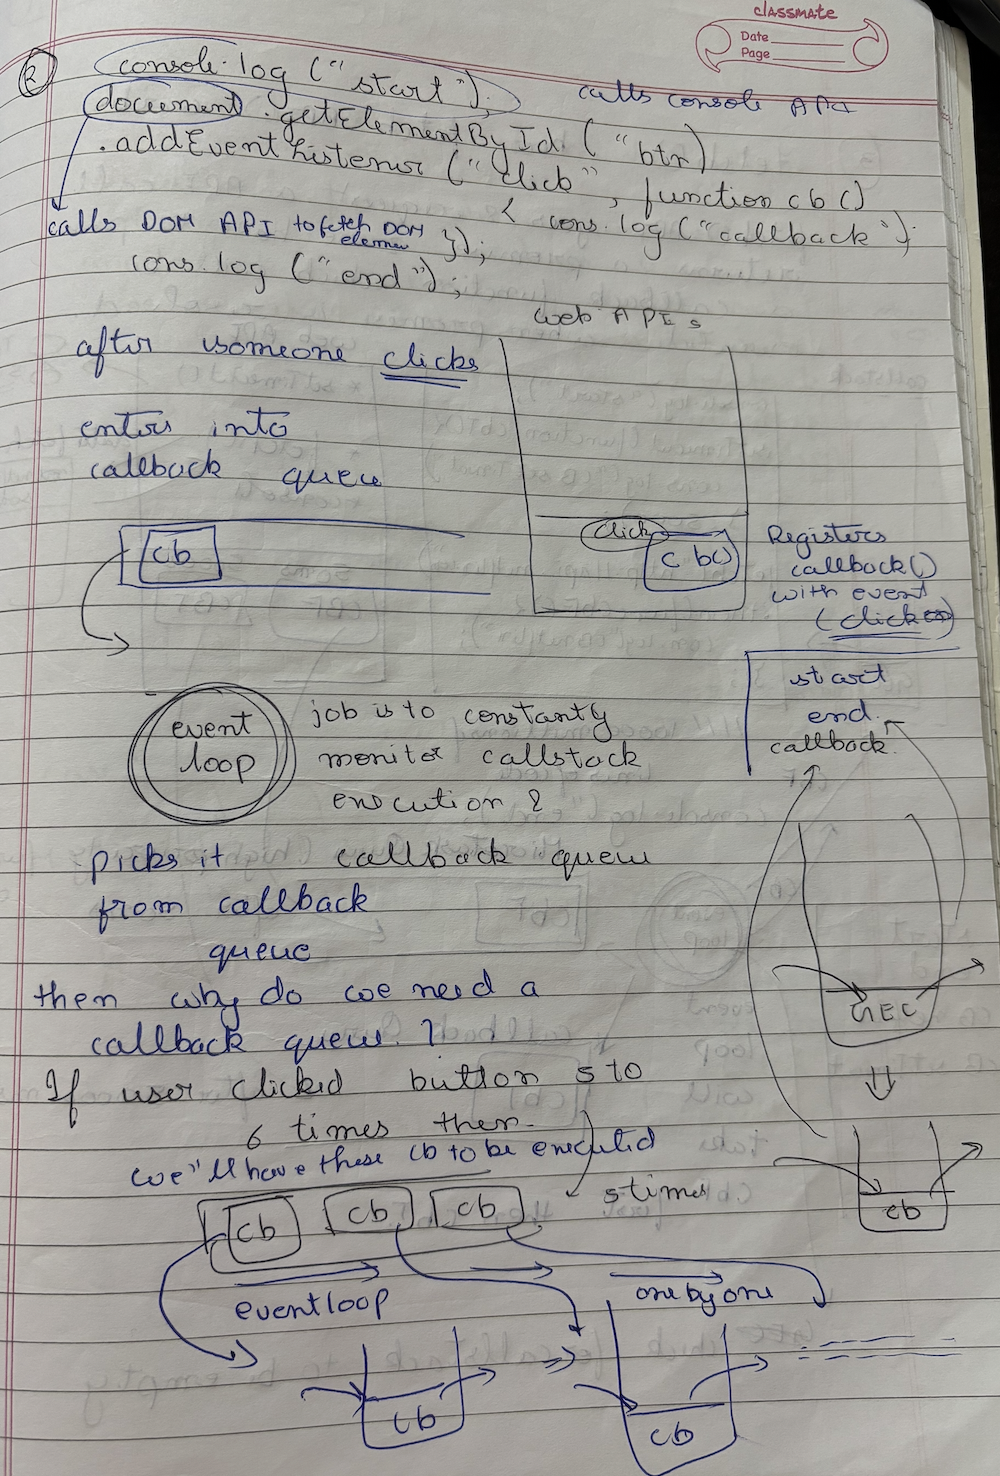 classmate
Date
Page
2
console.log ("start");
calls console API
document.getElementById ("btn)
.addEventListener ("click", function cb ()
{ cons.log ("callback");
calls DOM API to fetch DOM
});
cons.log ("end");
Web APIs
after someone clicks
enters into
callback queue
cb
click
cb()
Registers
callback()
with event
(click)
start
end
callback
event
loop
job is to constantly
monitor callstack
execution &
picks it callback queue
from callback
queue
then why do we need a
callback queue ?
GEC
If user clicked button 5 to
6 times then
we"ll have these cb to be executed
5 times
cb
cb cb cb
event loop
one by one
cb
cb